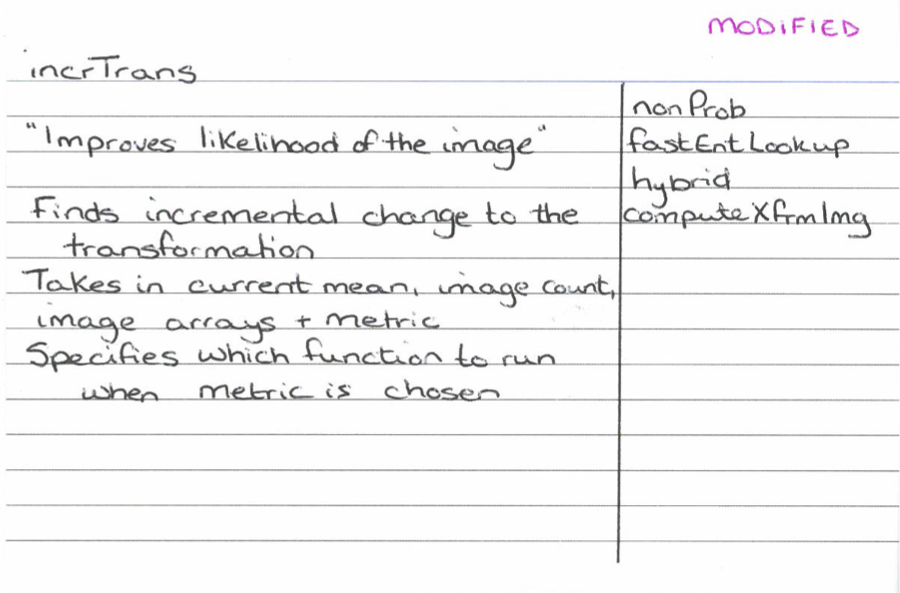 MODIFIED
incrTrans
"Improves likelihood of the image"
Finds incremental change to the
transformation
Takes in current mean, image count,
image arrays + metric
Specifies which function to run
when metric is chosen
nonProb
fastEntLookup
hybrid
computeXfrmImg